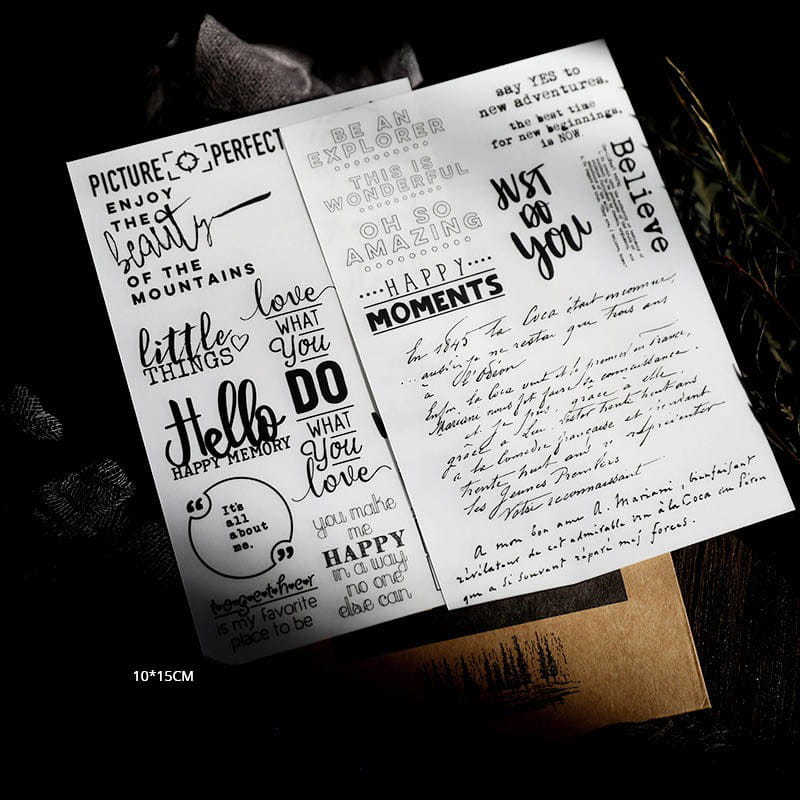 PICTURE PERFECT
ENJOY
THE
beauty
OF THE
MOUNTAINS
little
THINGS
love
WHAT
You
DO
WHAT
You
love
Hello
HAPPY MEMORY
“
It's
all
about
me.
”
you make
me
HAPPY
in a way
no one
else can
together
is my favorite
place to be
BE AN
EXPLORER
THIS IS
WONDERFUL
OH SO
AMAZING
HAPPY
MOMENTS
say YES to
new adventures.
the best time
for new beginnings,
is NOW.
JUST
DO
You
Believe
En 1845 la Coca était inconnue,
aussi je ne restai que trois ans
à l'Odéon
Enfin la Coca vint
Mariani nous fit faire sa connaissance.
et je pus, grâce à elle
grâce à Victor trente huit ans
à la Comédie française et
trente huit ans
les Jeunes Premiers
Votre reconnaissant
A mon bon ami A. Mariani, bienfaisant
révélateur du cet admirable vin à la Coca du Pérou
qui a si souvent réparé mes forces.
10*15CM